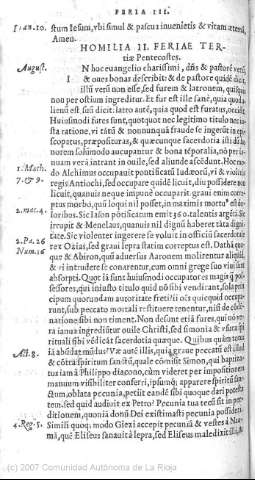 FERIA III.
Ioan. 10. stum Iesum, vbi simul & pascua inuenietis & vitam æternã,
Amen.
HOMILIA II. FERIAE TER-
tiæ Pentecostes.
August. IN hoc euangelio charissimi, dñs & pastorẽ verũ
& oues bonas describit: & de pastore quidẽ dicit,
illũ verũ non esse, sed furem & latronem, quisquis
non per ostium ingreditur. Et fur est ille sanè, quia quod a-
lienũ est suũ dicit: latro autẽ, quia quod est furatus, occidit.
Huiusmodi fures sunt, quotquot nec legitimo titulo nec iu-
sta ratione, vi tãtũ & nonnunquã fraude se ingerũt in epi-
scopatus, præposituras, & quæcunque sacerdotia isti
norem solummodo aucupantur & bona tẽporalia, nõ per ia-
nuam verã intrant in ouile, sed aliunde ascẽdũt. Hoc mo-
1. Mach. do Alchimus occupauit pontificatũ Iudæorũ, vi & violẽtia
7. & 9. regis Antiochi, sed occupare quidẽ licuit, diu possidere non
licuit, quamuis neque impunè occuparit: graui enim corre-
ptus morbo, quũ loqui nil posset, in maximis mortuus est do-
2. mac. 4. loribus. Sic Iason põtificatum emit 360. talentis argẽti: Sic
irrupit & Menelaus, quamuis nil dignũ haberet tãta digni-
2. Pa. 26 tate. Sic violenter ingerere se voluit in officiũ sacerdotale
Num. 16 rex Ozias, sed graui lepra statim correptus est. Dathã quo-
que & Abiron, quũ aduersus Aaronem molirentur aliquid,
& ei intrudere se conarentur, cum omni grege suo viui sunt
absorpti. Quot iã sunt huiusmodi occupatores magis quã pos-
sessores, qui iniusto titulo quid nõ sibi vendicant, sola prin-
cipum quorundam autoritate freti? ij oẽs quicquid occupa-
runt, sub peccato mortali restituere tenentur, nisi de cõdẽ-
natione sibi non timent. Non desunt etiã fures, qui nõ ve-
ra ianua ingrediuntur ouile Christi, sed simonia & vsura spi-
rituali sibi vẽdicãt sacerdotia quæque. Quibus quem titulũ
Act. 8. iã abũdat mũdus? Væ autẽ illis, quia graue peccatũ est illud
& cõtra spiritum sanctũ, quale cõmisit Simon, qui baptiza-
tur iam à Philippo diacono, cùm videret per impositionem
manuum visibiliter conferri, ipsumque apparere spiritũ san-
ctum, oblata pecunia, petijt eandẽ sibi quoque dari potesta-
tem. sed quid audiuit ex Petro? Pecunia tua tecũ sit in per-
ditionem, quoniã donũ Dei existimasti pecunia possideri.
4. Reg. 5. Simili quoque modo Giezi accepit pecuniã & vestes à Naa-
mã, quẽ Eliseus sanauit à lepra, sed Eliseus maledixit illi, &
(c) 2007 Comunidad Autónoma de La Rioja